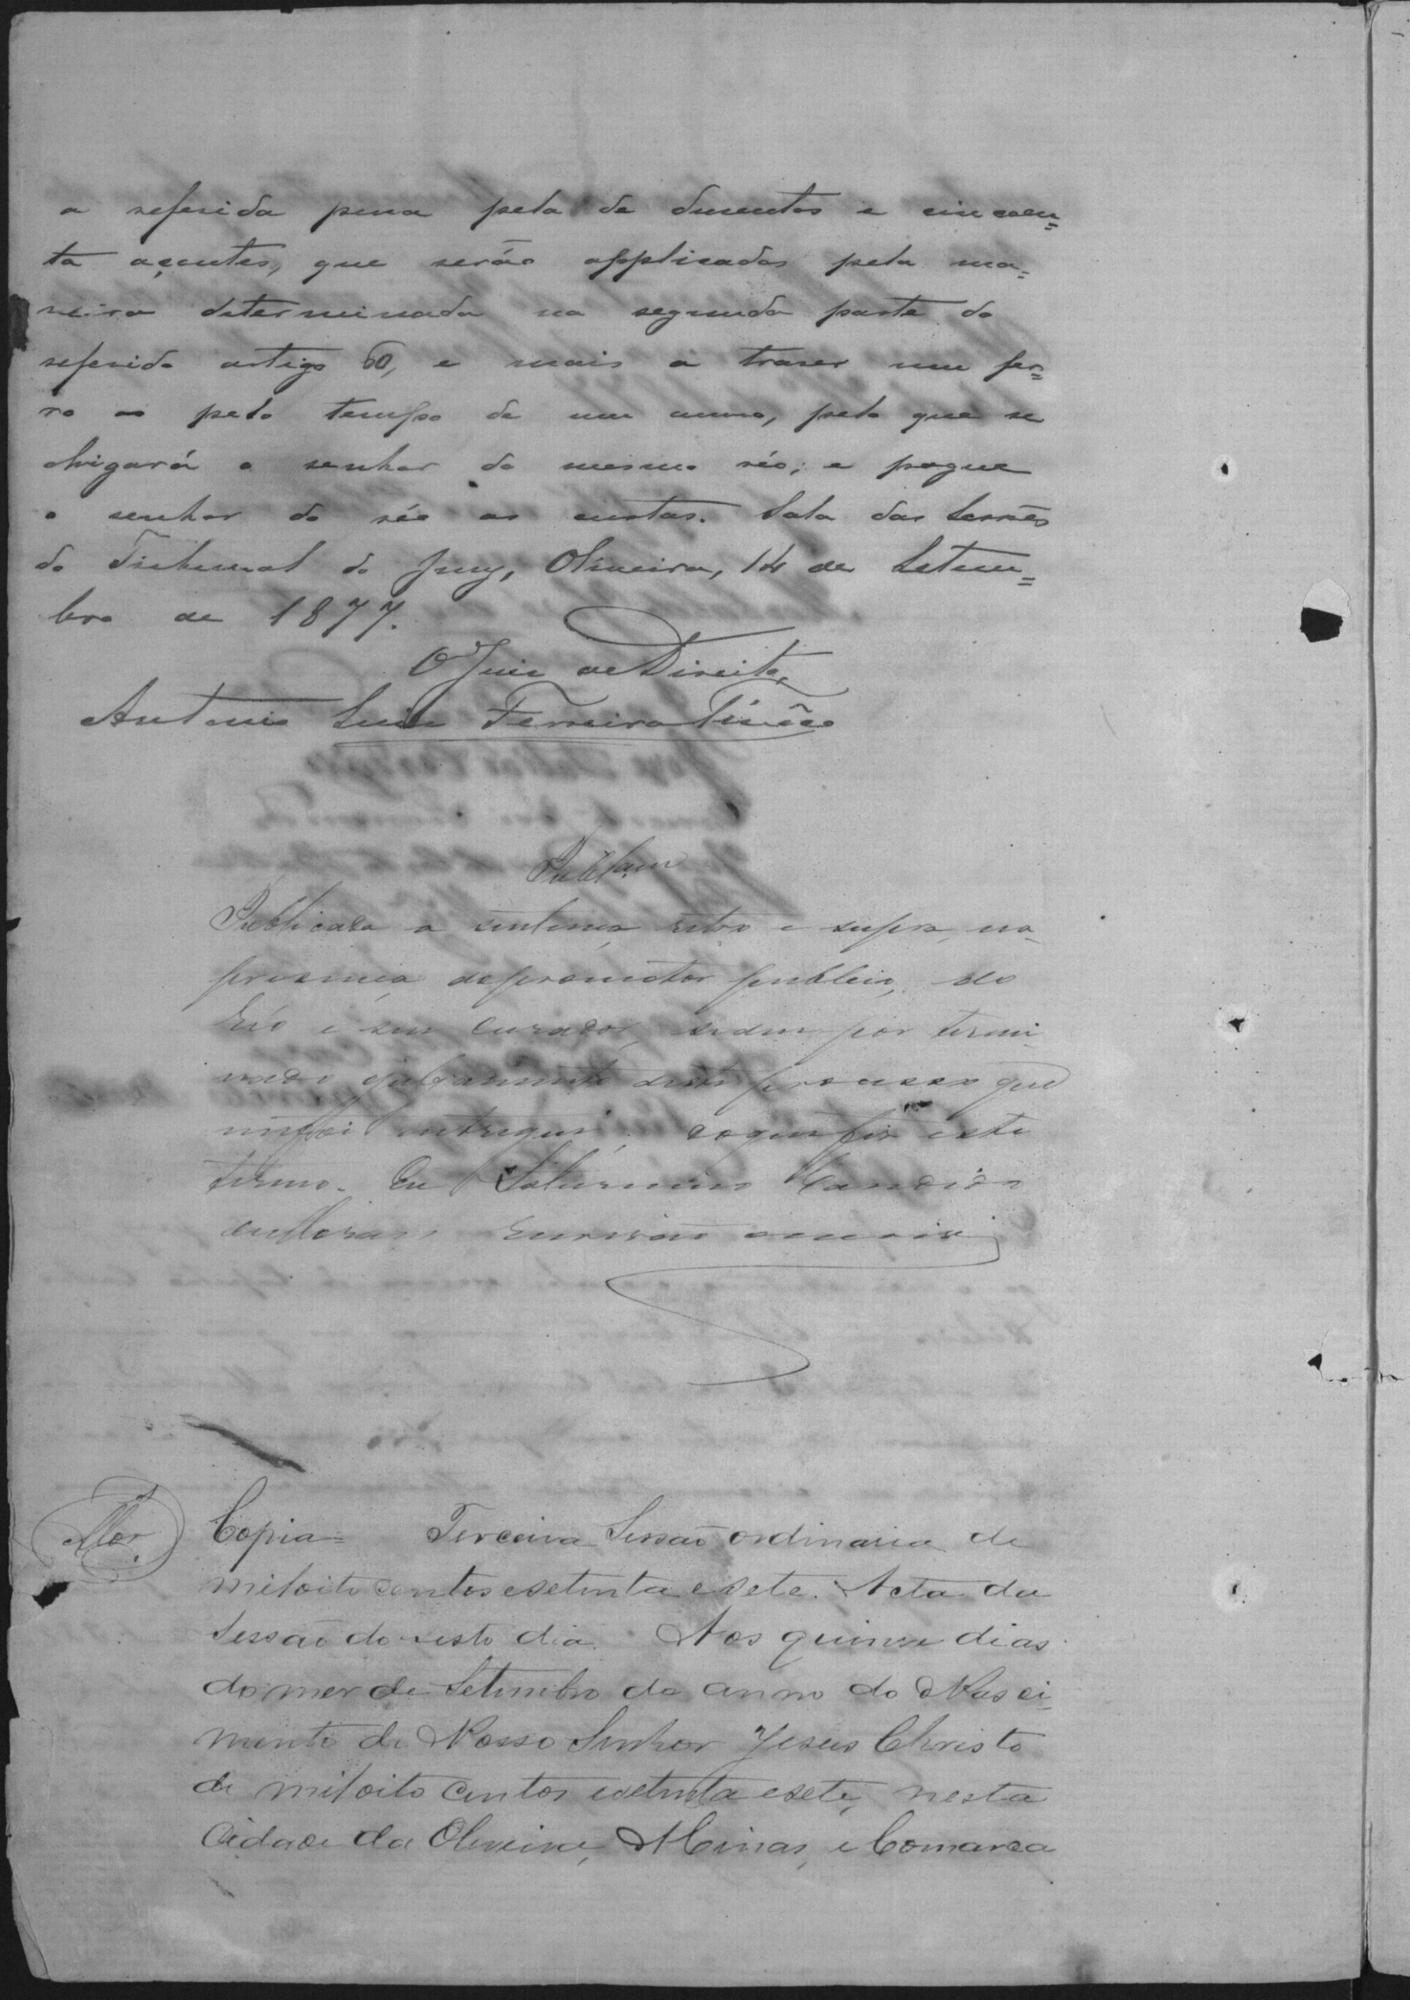 a referida pena pela de dusentos e cincoen=
ta açoutes, que serão applicados pela ma=
neira determinada na segunda parte do
referido artigo 60, e mais a traser um fer=
ro ao pelo tempo de um anno, pelo que se
obrigará o senhor do mesmo réo; e pague
o senhor do réo as custas. Sala das Sessões
do Tribunal do Jury, Oliveira, 14 de Setem=
bro de 1877.
O Juiz de Direito,
Antonio Luiz Ferreira Tinôco
Publ.am
Publicada a sentença retro e supra, na
presença do promotor publico, do
réo e seu Curador, e deu por termi
nado o julgamento deste processo que
me foi entregue; do que fiz este
termo. Eu Saturnino Candido
de Moraes Escrivão
Mor.
Copia= Terceira Sessão ordinaria de
mil oito centos e setenta e sete. Acta da
Sessão do sesto dia. Aos quinze dias
do mez de Setembro do anno do Nasci
mento de Nosso Senhor Jesus Christo
de mil oito centos e setenta e sete, nesta
Cidade da Oliveira, Minas, e Comarca